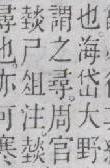 也海岱大野
謂之尋周官
燅尸俎注燅
尋也亦可寒